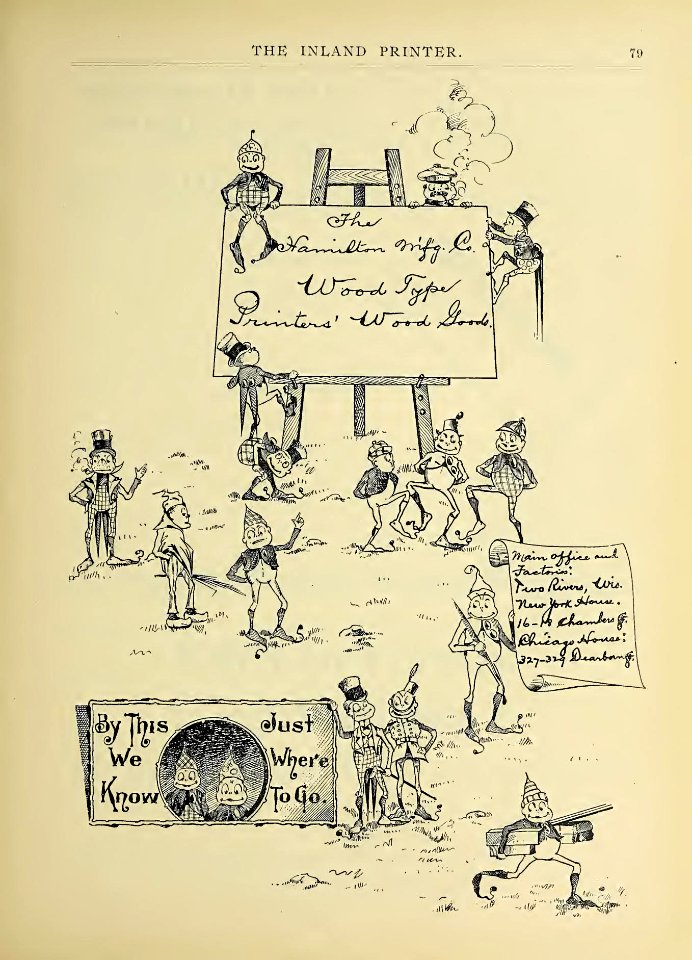 THE INLAND PRINTER.
79
The
Hamilton Mfg. Co.
Wood Type
Printers' Wood Goods.
Main Office and
Factories:
Two Rivers, Wis.
New York House.
16-18 Chambers St.
Chicago House:
327-329 Dearborn St.
By This
We
Know
Just
Where
To Go.